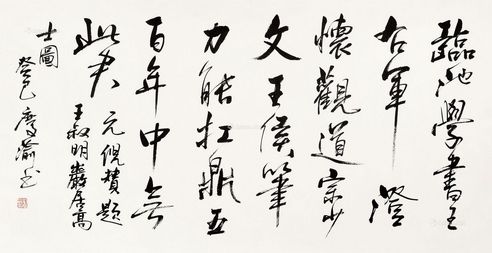 臨池學書王
右軍澄
懷觀道宗少
文王侯筆
力能扛鼎五
百年中無
此君元倪瓚題
王叔明巖居高
士圖
癸巳慶瀚書